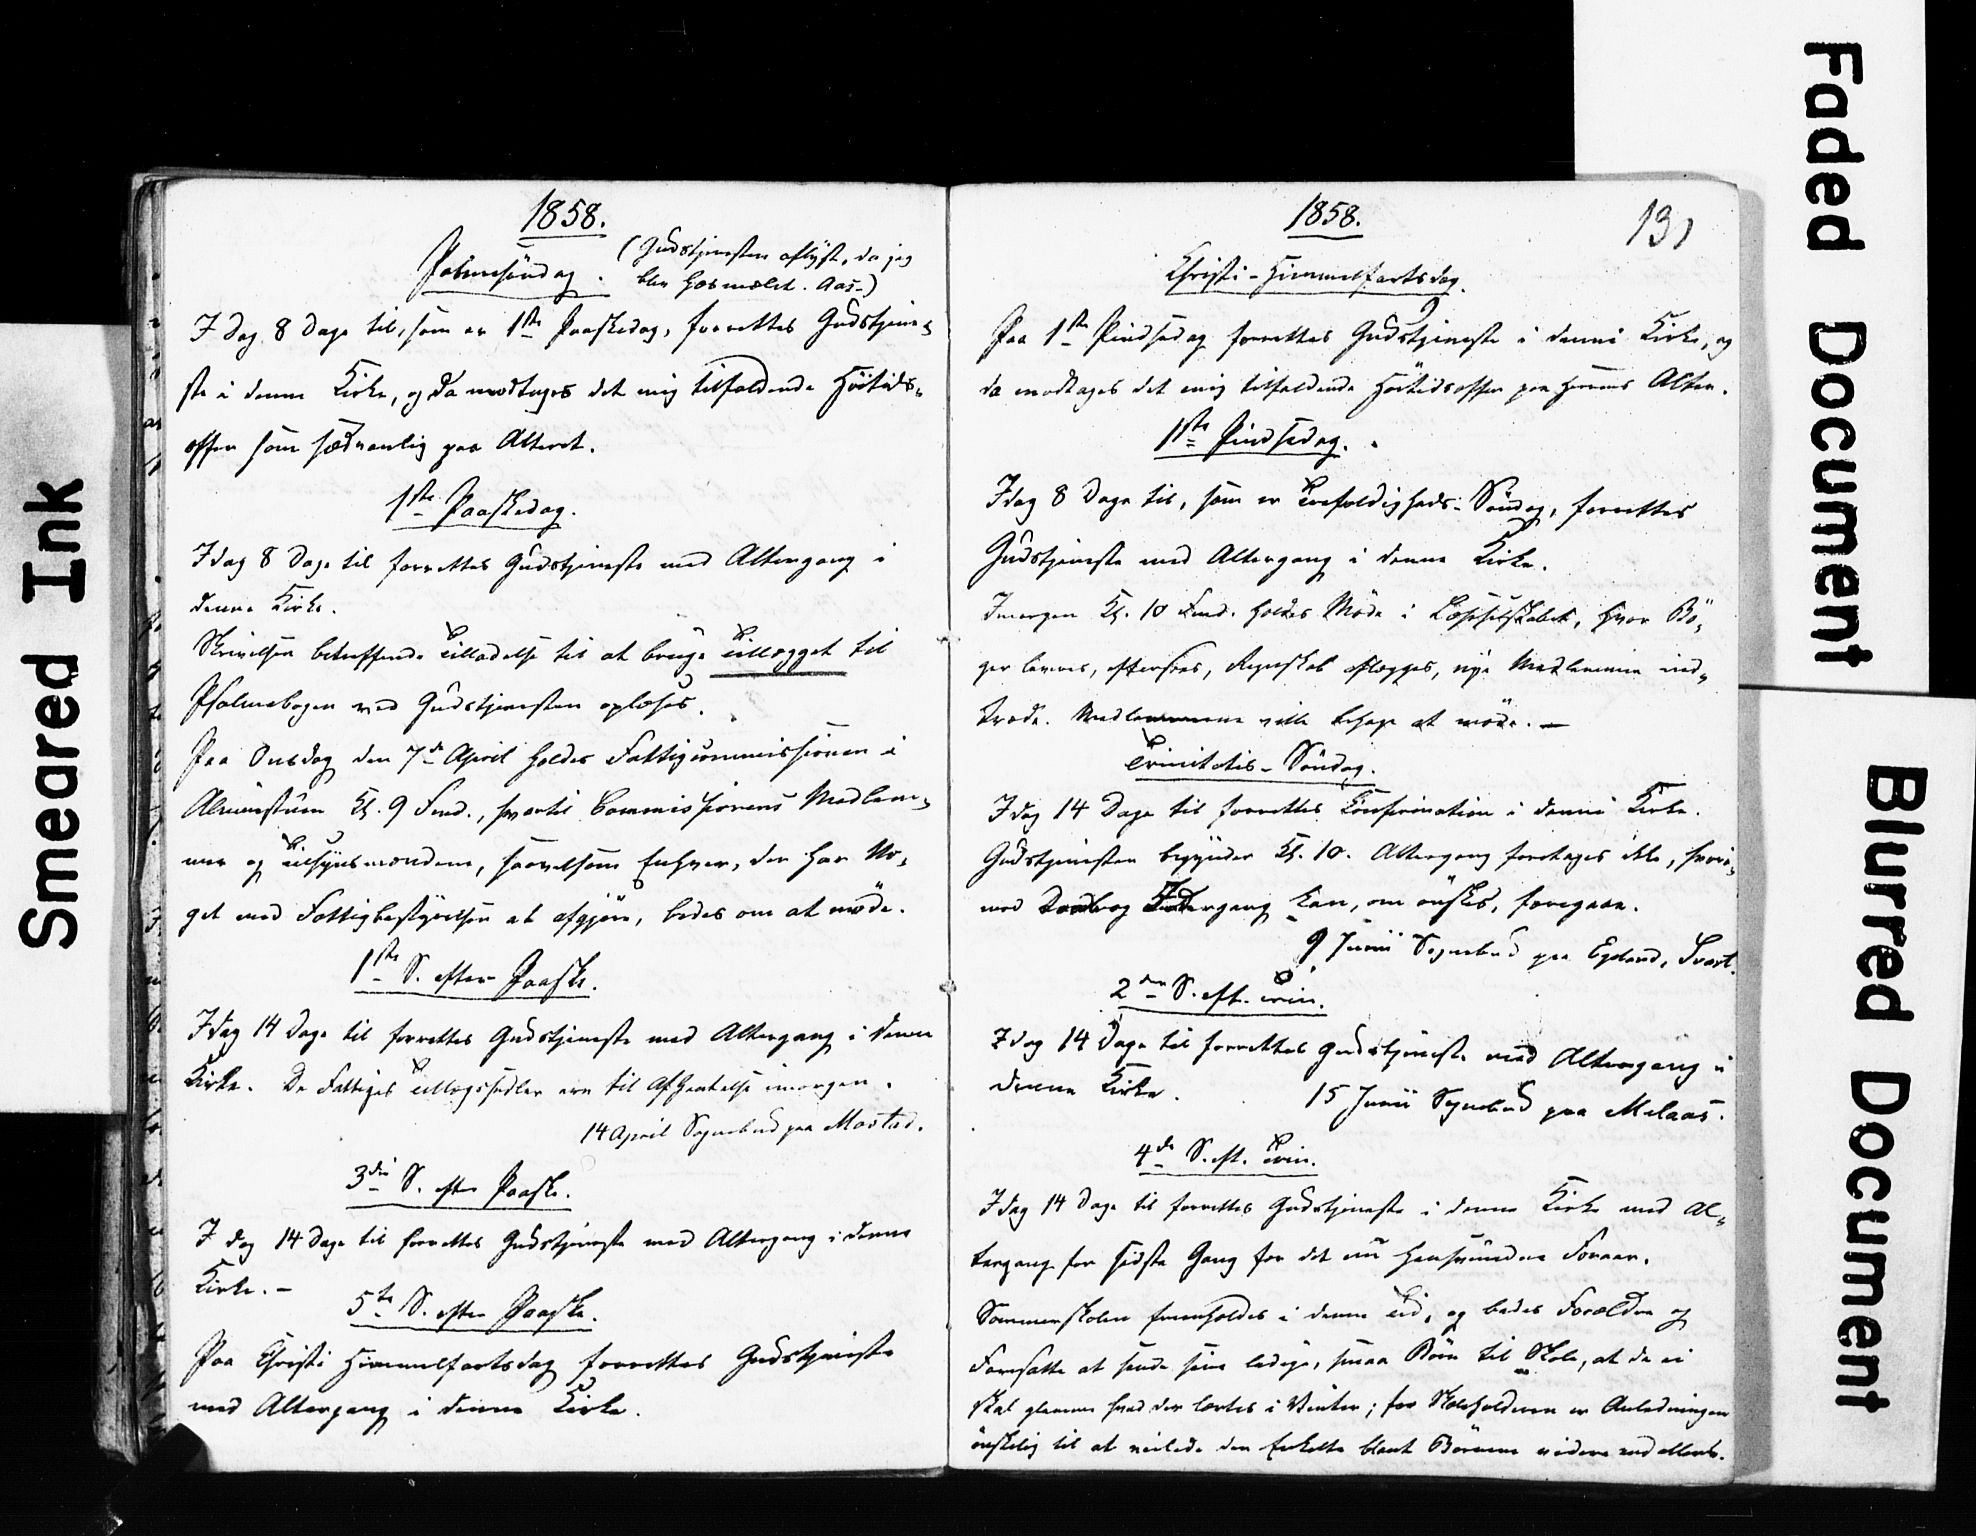 1858.
Palmesöndag. (Gudstjenesten aflyst, da jeg
blev hæs mælet. Aas.)
I Dag 8 Dage til, som er 1ste Paaskedag, forrettes Gudstjene-
ste i denne Kirke, og da modtages det mig tilfaldende Höitids-
offer som sædvanlig paa Alteret.
1ste Paaskedag.
Idag 8 Dage til forrettes Gudstjeneste med Altergang i
denne Kirke.
Skrivelsen betreffende Tilladelse til at bruge Tillægget til
Psalmebogen ved Gudstjenesten oplæses.
Paa Onsdag den 7de April holdes Fattigcommissionen i
Almuestuen Kl. 9 Fmd., hvortil Commissionens Medlem-
mer og Tilsynsmændene, saavelsom Enhver, der har No-
get med Fattigbestyrelsen at afgjöre, bedes om at møde.
1ste S. efter Paaske.
Idag 14 Dage til forrettes Gudstjeneste med Altergang i denne
Kirke. De Fattiges Tillægssedler ere til Afhentelse imorgen.
14 April Sognebud paa Mostad.
3die S. efter Paaske.
I dag 14 Dage til forrettes Gudstjeneste med Altergang i denne
Kirke. –
5te S. efter Paaske.
Paa Christi Himmelfartsdag forrettes Gudstjeneste
med Altergang i denne Kirke.
1858.
131
Christi-Himmelfartsdag.
Paa 1ste Pindsedag forrettes Gudstjeneste i denne Kirke, og
da modtages det mig tilfaldende Höitidsoffer paa Herrens Alter.
1ste Pindsedag.
Idag 8 Dage til, som er Trefoldigheds-Söndag, forrettes
Gudstjeneste med Altergang i denne Kirke.
Imorgen Kl. 10 Fmd. holdes Møde i Læseselskabet, hvor Bö-
ger leveres, eftersees, Regnskab aflægges, nye Medlemmer ind-
træde. Medlemmerne ville behage at møde. –
Trinitatis-Söndag.
Idag 14 Dage til forrettes Confirmation i denne Kirke.
Gudstjenesten begynder Kl. 10. Altergang foretages ikke, hvori-
mod Daab og Indgang kan, om önskes, foregaae.
9 Junii Sognebud paa Egeland, Svart.
2den S. eft. Trin.
Idag 14 Dage til forrettes Gudstjeneste med Altergang i
denne Kirke.
15 Junii Sognebud paa Melaas.
4de S. eft. Trin.
Idag 14 Dage til forrettes Gudstjeneste i denne Kirke med Al-
tergang for sidste Gang for det nu hensvundne Foraar.
Sommerskolen fremholdes i denne Tid, og bedes Forældre og
Foresatte at sende sine ledige, smaa Börn til Skole, at de ei
skal glemme hvad der lærtes i Vinter; for Skoleholderen er Anledningen
önskelig til at veilede den Enkelte blandt Börnene videre end ellers.
Smeared Ink
Faded Document
Blurred Document